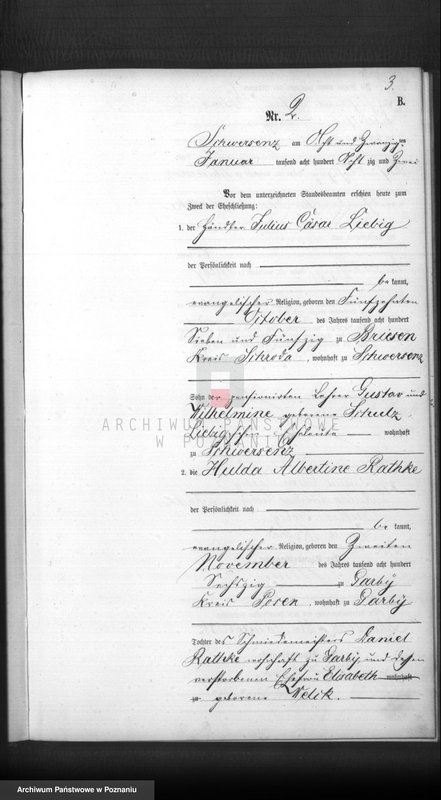 3.
B.
Nr. 2.
Schwersenz am Acht und Zwanzig ten
Januar tausend acht hundert Acht zig und Zwei
Vor dem unterzeichneten Standesbeamten erschien heute zum
Zweck der Eheschließung:
1. der Händler Julius Cäsar Liebig
der Persönlichkeit nach
be kannt,
evangelischer Religion, geboren den Fünfzehnten
October des Jahres tausend acht hundert
Sieben und Fünfzig zu Briesen
Kreis Schroda, wohnhaft zu Schwersenz
Sohn der pensionirten Lehrer Gustav und
Wilhelmine geborene Schulz
Liebig'schen Eheleute wohnhaft
zu Schwersenz
ARCHIWUM PAŃSTWOWE
W POZNANIU
2. die Hulda Albertine Rathke
der Persönlichkeit nach
be kannt,
evangelischer Religion, geboren den Zweiten
November des Jahres tausend acht hundert
Sechszig zu Garby
Kreis Posen, wohnhaft zu Garby
Tochter des Schmiedemeisters Daniel
Rathke zu Garby und dessen
verstorbenen Ehefrau Elisabeth wohnhaft
zu geborene Welik.
Archiwum Państwowe w Poznaniu